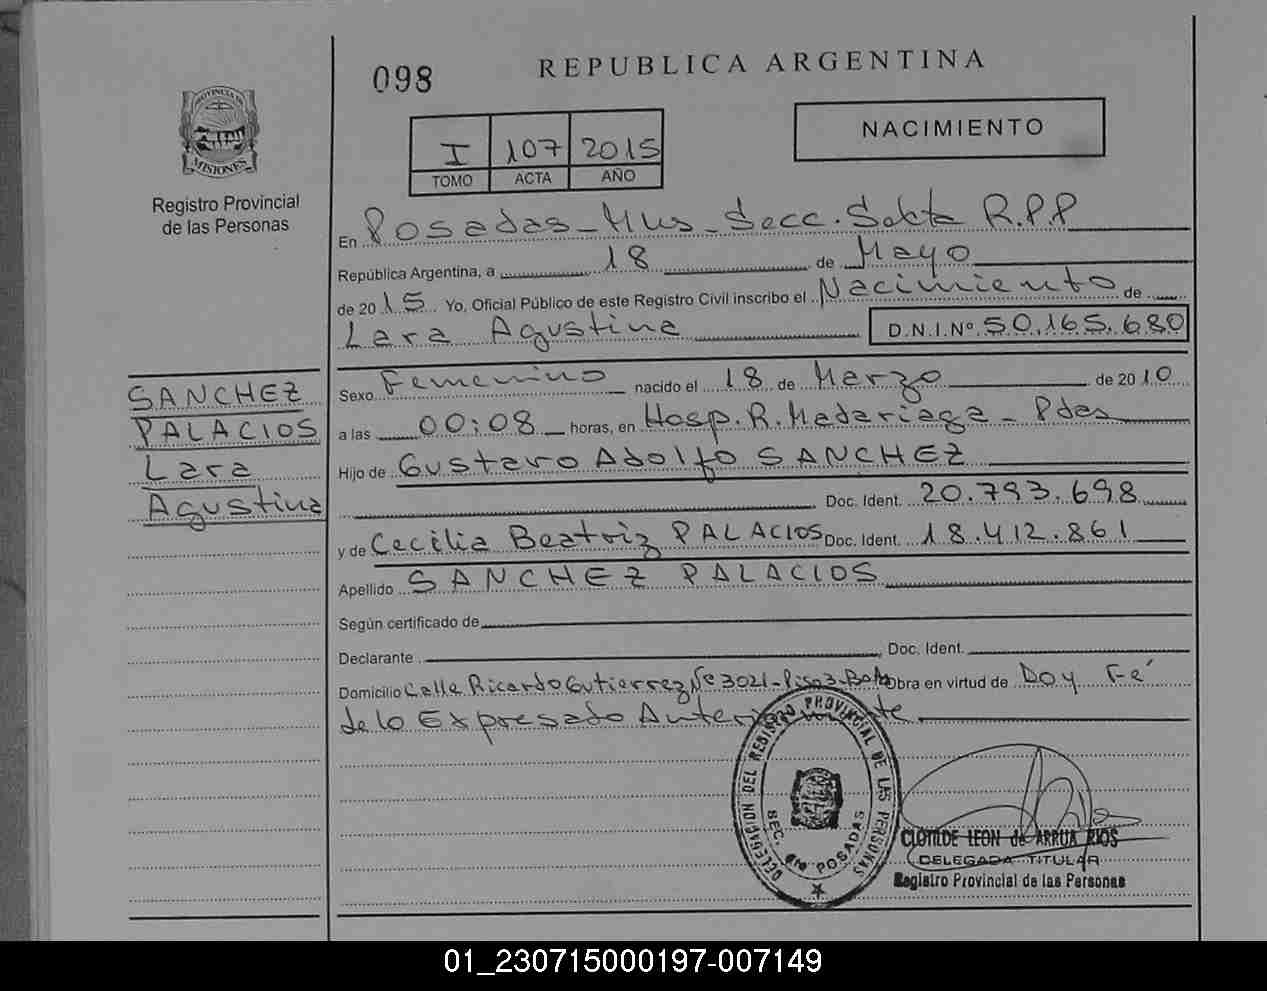 098
REPUBLICA ARGENTINA
PROVINCIA DE
MISIONES
Registro Provincial
de las Personas
I 107 2015
TOMO ACTA AÑO
NACIMIENTO
En Posadas - Mns - Secc. Sexta R.P.P
República Argentina, a 18 de Mayo
de 2015 Yo, Oficial Público de este Registro Civil inscribo el Nacimiento de
Lara Agustina D.N.I.Nº 50.165.680
SANCHEZ
PALACIOS
Lara
Agustina
Sexo Femenino nacido el 18 de Marzo de 2010
a las 00:08 horas, en Hosp. R. Madariaga - Pdas
Hijo de Gustavo Adolfo SANCHEZ
Doc. Ident. 20.793.698
y de Cecilia Beatriz PALACIOS Doc. Ident. 18.412.861
Apellido SANCHEZ PALACIOS
Según certificado de
Declarante Doc. Ident.
Domicilio Calle Ricardo Gutierrez Nº 3021 - Piso 3 - Obra en virtud de Doy Fé
de lo Expresado Anteriormente
DELEGACION DEL REGISTRO PROVINCIAL DE LAS PERSONAS
SEC. 6ta POSADAS
CLOTILDE LEON de ARRUA RIOS
DELEGADA TITULAR
Registro Provincial de las Personas
01_230715000197-007149